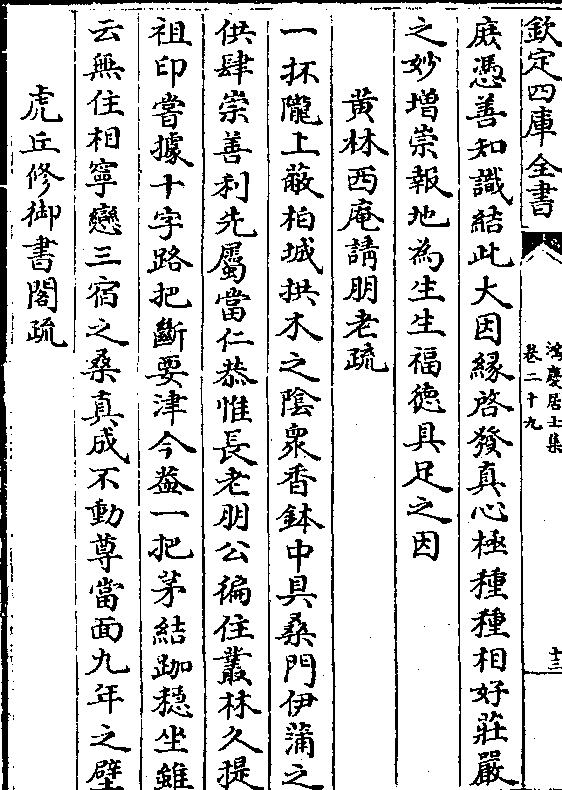 欽定四庫全書
鴻慶居士集
卷二十九
十三
庻憑善知識結此大因緣啓發真心極種種相好莊嚴
之妙增崇報地為生生福徳具足之因
黄林西庵請朋老疏
一抔隴上蔽柏城拱木之隂衆香鉢中具桑門伊蒲之
供肆崇善利先屬當仁恭惟長老朋公徧住叢林久提
祖印嘗據十字路把斷要津今葢一把茅結跏穏坐雖
云無住相寧戀三宿之桑真成不動尊當面九年之壁
虎丘修御書閣疏